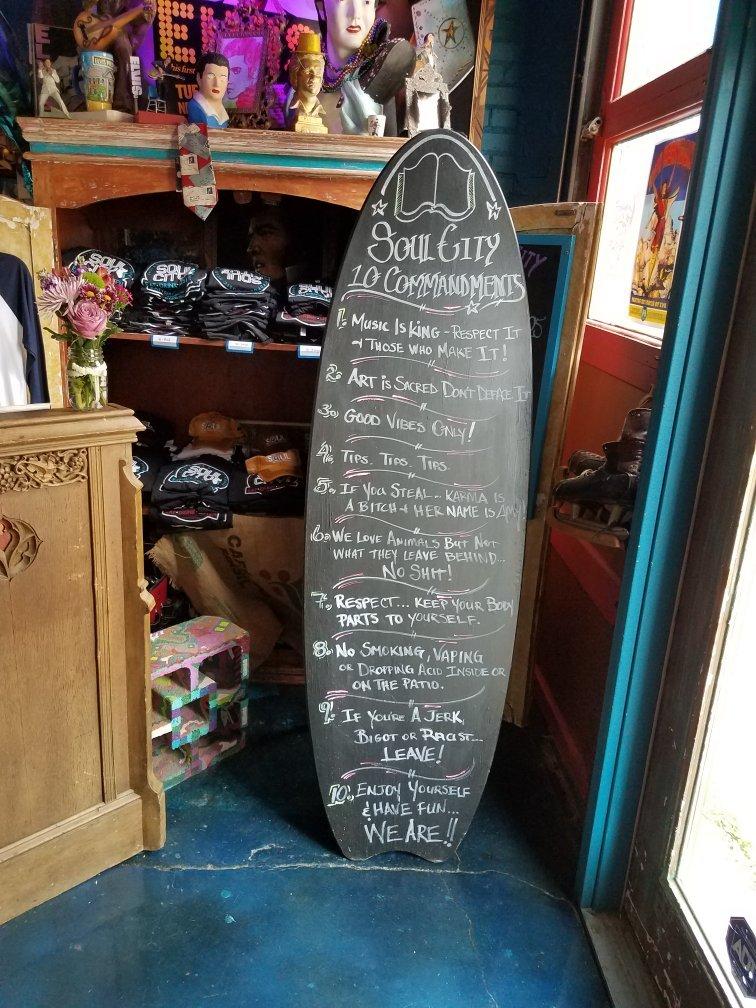 ELVIS
SOUL CITY
10 COMMANDMENTS
1. MUSIC IS KING - RESPECT IT
+ THOSE WHO MAKE IT!
2. ART IS SACRED DON'T DEFACE IT
3. GOOD VIBES ONLY!
4. TIPS. TIPS. TIPS.
5. IF YOU STEAL.. KARMA IS
A BITCH + HER NAME IS AMY!
6. WE LOVE ANIMALS BUT NOT
WHAT THEY LEAVE BEHIND...
NO SHIT!
7. RESPECT... KEEP YOUR BODY
PARTS TO YOURSELF.
8. NO SMOKING, VAPING
OR DROPPING ACID INSIDE OR
ON THE PATIO.
9. IF YOU'RE A JERK,
BIGOT OR RACIST...
LEAVE!
10. ENJOY YOURSELF
& HAVE FUN...
WE ARE!!
SOUL
CITY
SOUL
SOUL